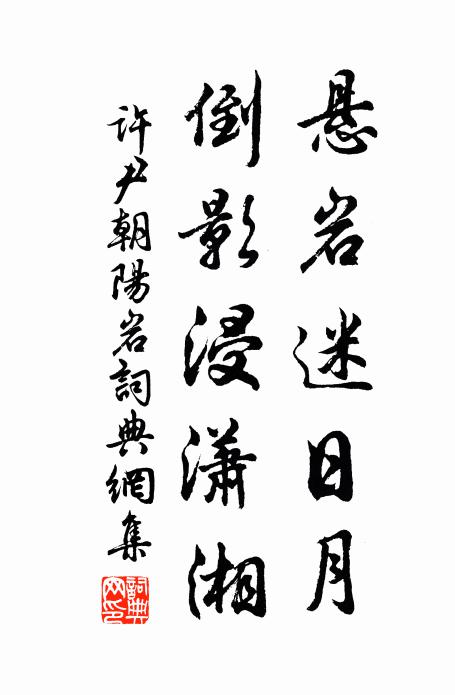 悬岩迷日月
倒影浸瀟湘
许尹朝陽岩詞典網集
詞典网印